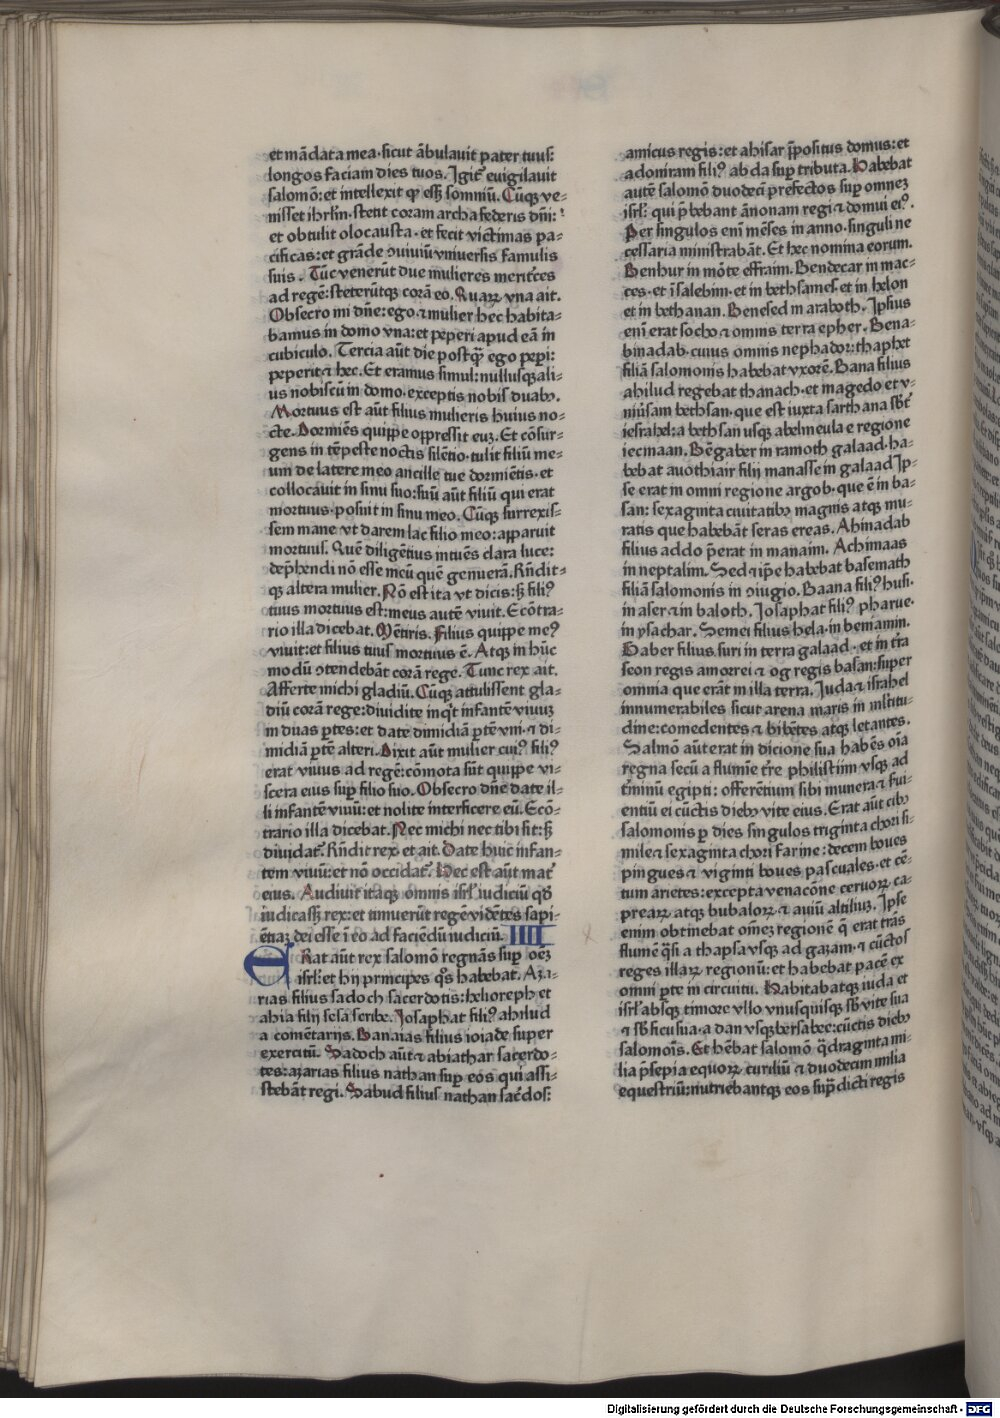 et mādata mea·sicut ābulavit pater tuus:
longos faciam dies tuos. Igit᷑ euigilauit
salomō: et intellexit qꝫ esſꝫ somniū. Cūqꝫ ve⸗
nisset ihrl̄m·stetit coram archa federis dn̄i:
et obtulit olocausta·et fecit victimas pa⸗
cificas: et grāde ↄuiuiū vniuersis famulis
suis. Tūc venerūt due mulieres meritͦces
ad regē: steterūtqꝫ corā eo. Quaꝝ vna ait.
Obsecro mi dn̄e: ego ⁊ mulier hec habita⸗
bamus in domo vna: et peperi apud eā in
cubiculo. Tercia aūt die postqꝫ̄ ego pepi:
peperit ⁊ hec. Et eramus simul: nullusqꝫ ali⸗
us nobiscū in domo·exceptis nobis duabꝰ.
Mortuus est aūt filius mulieris huius no⸗
cte. Dormiēs quippe oppressit euꝫ. Et cōsur⸗
gens in tēpeste noctis silētio·tulit filiū me⸗
um de latere meo ancille tue dormiētis·et
collocauit in sinu suo: suū aūt filiū qui erat
mortuus·posuit in sinu meo. Cūqꝫ surrexis⸗
sem mane vt darem lac filio meo: apparuit
mortuus. Quē diligētius intuēs clara luce:
dep̄hendi nō esse meū quē genuerā. Rn̄dit⸗
qꝫ altera mulier. Nō est ita vt dicis: sꝫ filiꝰ
tuus mortuus est: meus autē viuit. Ecōtra⸗
rio illa dicebat. Mētiris. Filius quippe meꝰ
viuit: et filius tuus mortuus ē. Atqꝫ in hūc
modū ↄtendebāt corā rege. Tunc rex ait.
Afferte michi gladiū. Cūqꝫ attulissent gla⸗
diū corā rege: diuidite inqͥt infantē viuuꝫ
in duas ꝑtes: et date dimidiā ꝑtē vni·⁊ di⸗
midiā ꝑtē alteri. Dixit aūt mulier cuiꝰ filiꝰ
erat viuus ad regē: cōmota sūt quippe vi⸗
scera eius suꝑ filio suo. Obsecro dn̄e date il⸗
li infantē viuū: et nolite interficere eū. Ecō⸗
trario illa dicebat. Nec michi nec tibi sit: sꝫ
diuidat᷑. Rn̄dit rex et ait. Date huic infan⸗
tem viuū: et nō occidat᷑. Hec est aūt mat᷑
eius. Audiuit itaqꝫ omnis isrl̄ iudiciū qd̄
iudicasſꝫ rex: et timuerūt regē vidētes sapi⸗
ētiaꝫ dei esse ī eo ad faciēdū iudiciū. IIII
Erat aūt rex salomō regnās suꝑ oēꝫ
isrl̄: et hij principes qͦs habebat. Aza⸗
rias filius sadoch sacerdotis: helioreph et
ahia filij sesa scribe. Josaphat filiꝰ ahilud
a comētarijs. Banaias filius ioiade super
exercitū. Sadoch aūt ⁊ abiathar sacerdo⸗
tes: azarias filius nathan suꝑ eos qui assi⸗
stebāt regi. Sabud filius nathan sac̄dos:
amicus regis: et ahisar p̄positus domus: et
adoniram filiꝰ abda suꝑ tributa. Habebat
autē salomō duodecī prefectos suꝑ omneꝫ
isrl̄: qui p̄bebant ānonam regi ⁊ domui eiꝰ.
Per singulos enī mēses in anno·singuli ne
cessaria ministrabāt. Et hec nomina eorum.
Benhur in mōte effraim. Bendecar in mac⸗
ces·et ī salebim·et in bethsames·et in helon
et in bethanan. Benesed in araboth. Ipsius
enī erat socho ⁊ omnis terra epher. Bena⸗
binadab·cuius omnis nephador: thaphet
filiā salomonis habebat vxorē. Bana filius
ahilud regebat thanach·et magedo et v⸗
niūsam bethsan·que est iuxta sarthana sb̄t᷑
iesrahel: a bethsan usqꝫ abelmeula e regione
iecmaan. Bēgaber in ramoth galaad·ha⸗
bebat auothiair filij manasse in galaad Ip⸗
se erat in omni regione argob·que ē in ba⸗
san: sexaginta ciuitatibꝰ magnis atqꝫ mu⸗
ratis que habebāt seras ereas. Ahinadab
filius addo p̄erat in manaim. Achimaas
in neptalim. Sed ⁊ ip̄e habebat basemath
filiā salomonis in ↄiugio. Baana filiꝰ husi·
in aser et in baloth. Josaphat filiꝰ pharue·
in ysachar. Semei filius hela·in beniamin.
Gaber filius suri in terra galaad·et in tr̄a
seon regis amorrei ⁊ og regis basan: super
omnia que erāt in illa terra. Juda ⁊ israhel
innumerabiles sicut arena maris in multitu⸗
dine: comedentes ⁊ bibētes atqꝫ letantes.
Salmō aūt erat in dicione sua habēs oīa
regna secū a flumīe tr̄re philistiim vsqꝫ ad
t᷑minū egipti: offerētium sibi munera ⁊ ſui⸗
entiū ei cūctis diebꝰ vite eius. Erat aūt cibꝰ
salomonis ꝑ dies singulos triginta chori si⸗
mile ⁊ sexaginta chori farine: decem boues
pingues ⁊ viginti boues pascuales·et cē⸗
tum arietes: excepta venacōne ceruoꝝ ca⸗
preaꝝ atqꝫ bubaloꝝ ⁊ auiū altiliuꝫ. Ipse
enim obtinebat omēꝫ regionē q̄ erat trās
flumē qͣsi a thapsa vsqꝫ ad gazam·⁊ cūctos
reges illaꝝ regionū: et habebat pacē ex
omni ꝑte in circuitu. Habitabatqꝫ iuda et
isrl̄ absqꝫ timore vllo vnusquisqꝫ sb̄ vite sua
⁊ sb̄ ficu sua·a dan vsqꝫ bersabee: cūctis diebꝰ
salomōis. Et hēbat salomō qͣdraginta mi⸗
lia p̄sepia equoꝝ curiliū ⁊ duodecim milia
equestriū: nutriebantqꝫ eos sup̄dicti regis
Digitalisierung gefördert durch die Deutsche Forschungsgemeinschaft - DFG